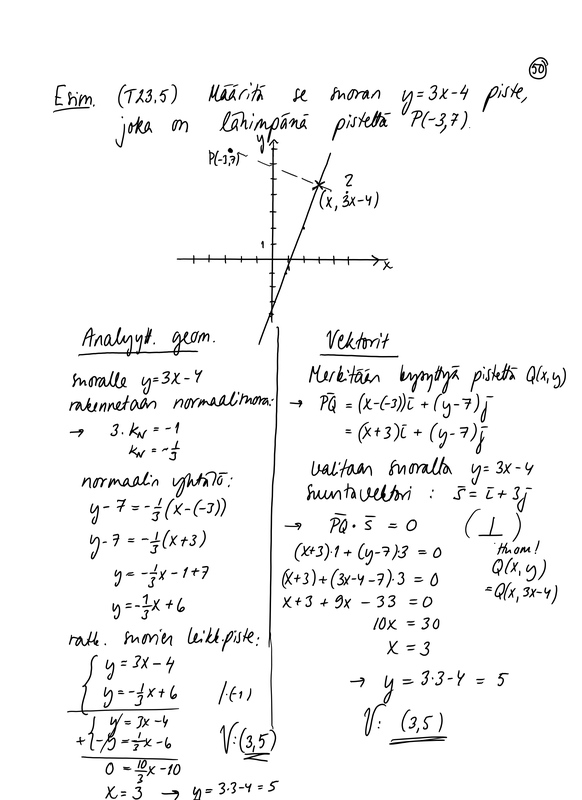 50
Esim. (T23.5) Määritä se suoran y=3x-4 piste,
joka on lähimpänä pistettä P(-3,7).
y
P(-3,7)
?
(x, 3x-4)
1
x
Analyytt. geom.
suoralle y=3x-4
rakennetaan normaalisuora:
→ 3·k_N = -1
k_N = -1/3
normaalin yhtälö:
y-7 = -1/3(x-(-3))
y-7 = -1/3(x+3)
y = -1/3x-1+7
y = -1/3x+6
ratk. suorien leikk.piste:
{ y = 3x-4
y = -1/3x+6 |·(-1)
y = 3x-4
+ -y = 1/3x-6
0 = 10/3x-10
x = 3 → y = 3·3-4 = 5
V: (3,5)
Vektorit
Merkitään kysyttyä pistettä Q(x,y)
→ P̄Q̄ = (x-(-3))ī + (y-7)j̄
= (x+3)ī + (y-7)j̄
valitaan suoralta y=3x-4
suuntavektori : s̄ = ī + 3j̄
→ P̄Q̄ · s̄ = 0 (⊥)
(x+3)·1 + (y-7)·3 = 0
Huom!
Q(x,y)
=Q(x,3x-4)
(x+3)+(3x-4-7)·3 = 0
x+3 + 9x - 33 = 0
10x = 30
x = 3
→ y = 3·3-4 = 5
V: (3,5)